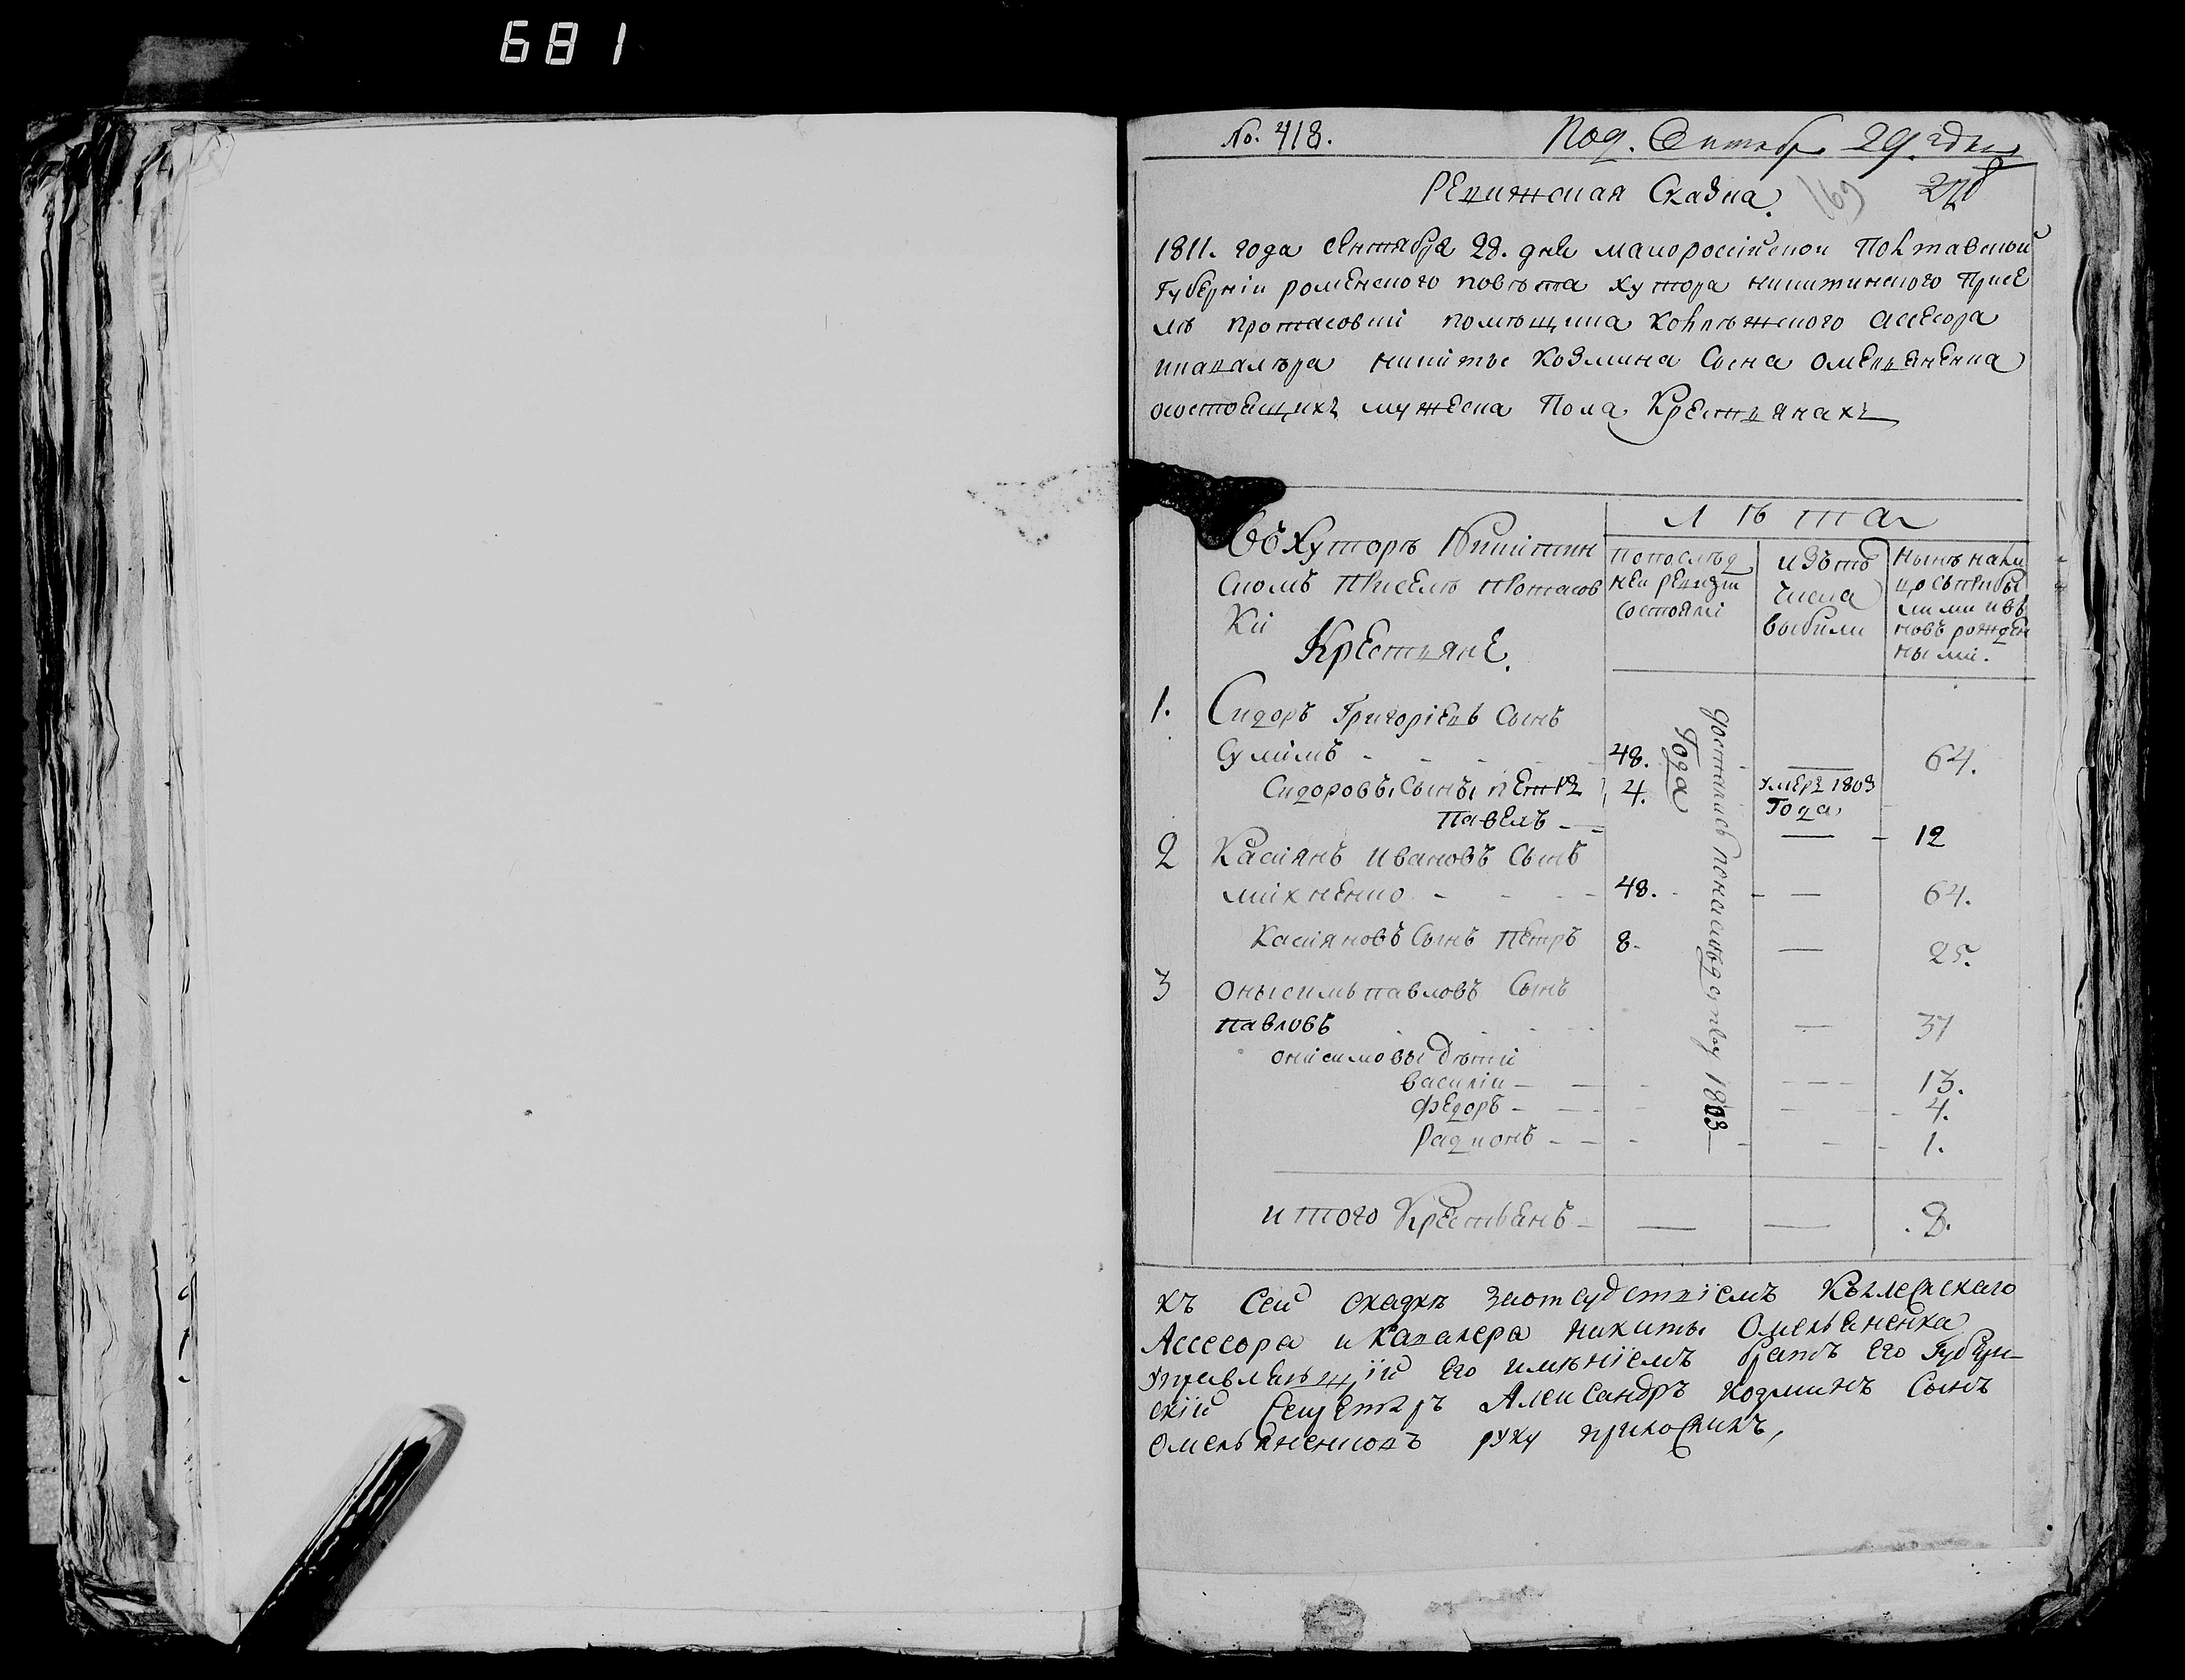 681
No. 418.
Под. Сентябр 29. дня
Ревижская Сказка.
169
1811. года Сентября 28. дня малоросийской Полтавской
Губерніи роменского повѣта хутора никитинского присе
лѣ протасовки помѣщика колѣжского асесора
икавалѣра никиты козмина Сына омельяненка
осостоящихъ мужеска пола Крестьянахъ
Въ Хуторѣ Никитин
скомъ приселѣ протасов
ки
Крестьяне.
Лѣта
попослѣд
ней ревизіи
состояли
изътого
числа
выбили
нынѣ нали
цо съприбы
лими ивъ
новъ рожден
ными.
1. Сидоръ Григоріевъ Сынъ
Сулимъ - 48. — 64.
Сидоровы Сыны петръ 4. умеръ 1803
Года
Павелъ — 12
2 Касіянъ Ивановъ Сынъ
михненко - 48. — 64.
Касіяновъ Сынъ Петръ 8. — 25.
3 онысимъ павловъ Сынъ
павловъ — 37
онисимовы дѣти
василіи — 13.
Федоръ — 4.
Радионъ — 1.
достались понаслѣдству 1803
Года
итого Крестьянъ — — 8.
къ Сей скаскѣ заотсудствіемъ Колежскаго
Ассесора иКавалера Никиты Омельяненка
управляющій Его имѣніемъ братъ Его Губерн-
скій Секретаръ Александръ козминъ Сынъ
Омельяненковъ руку приложилъ,